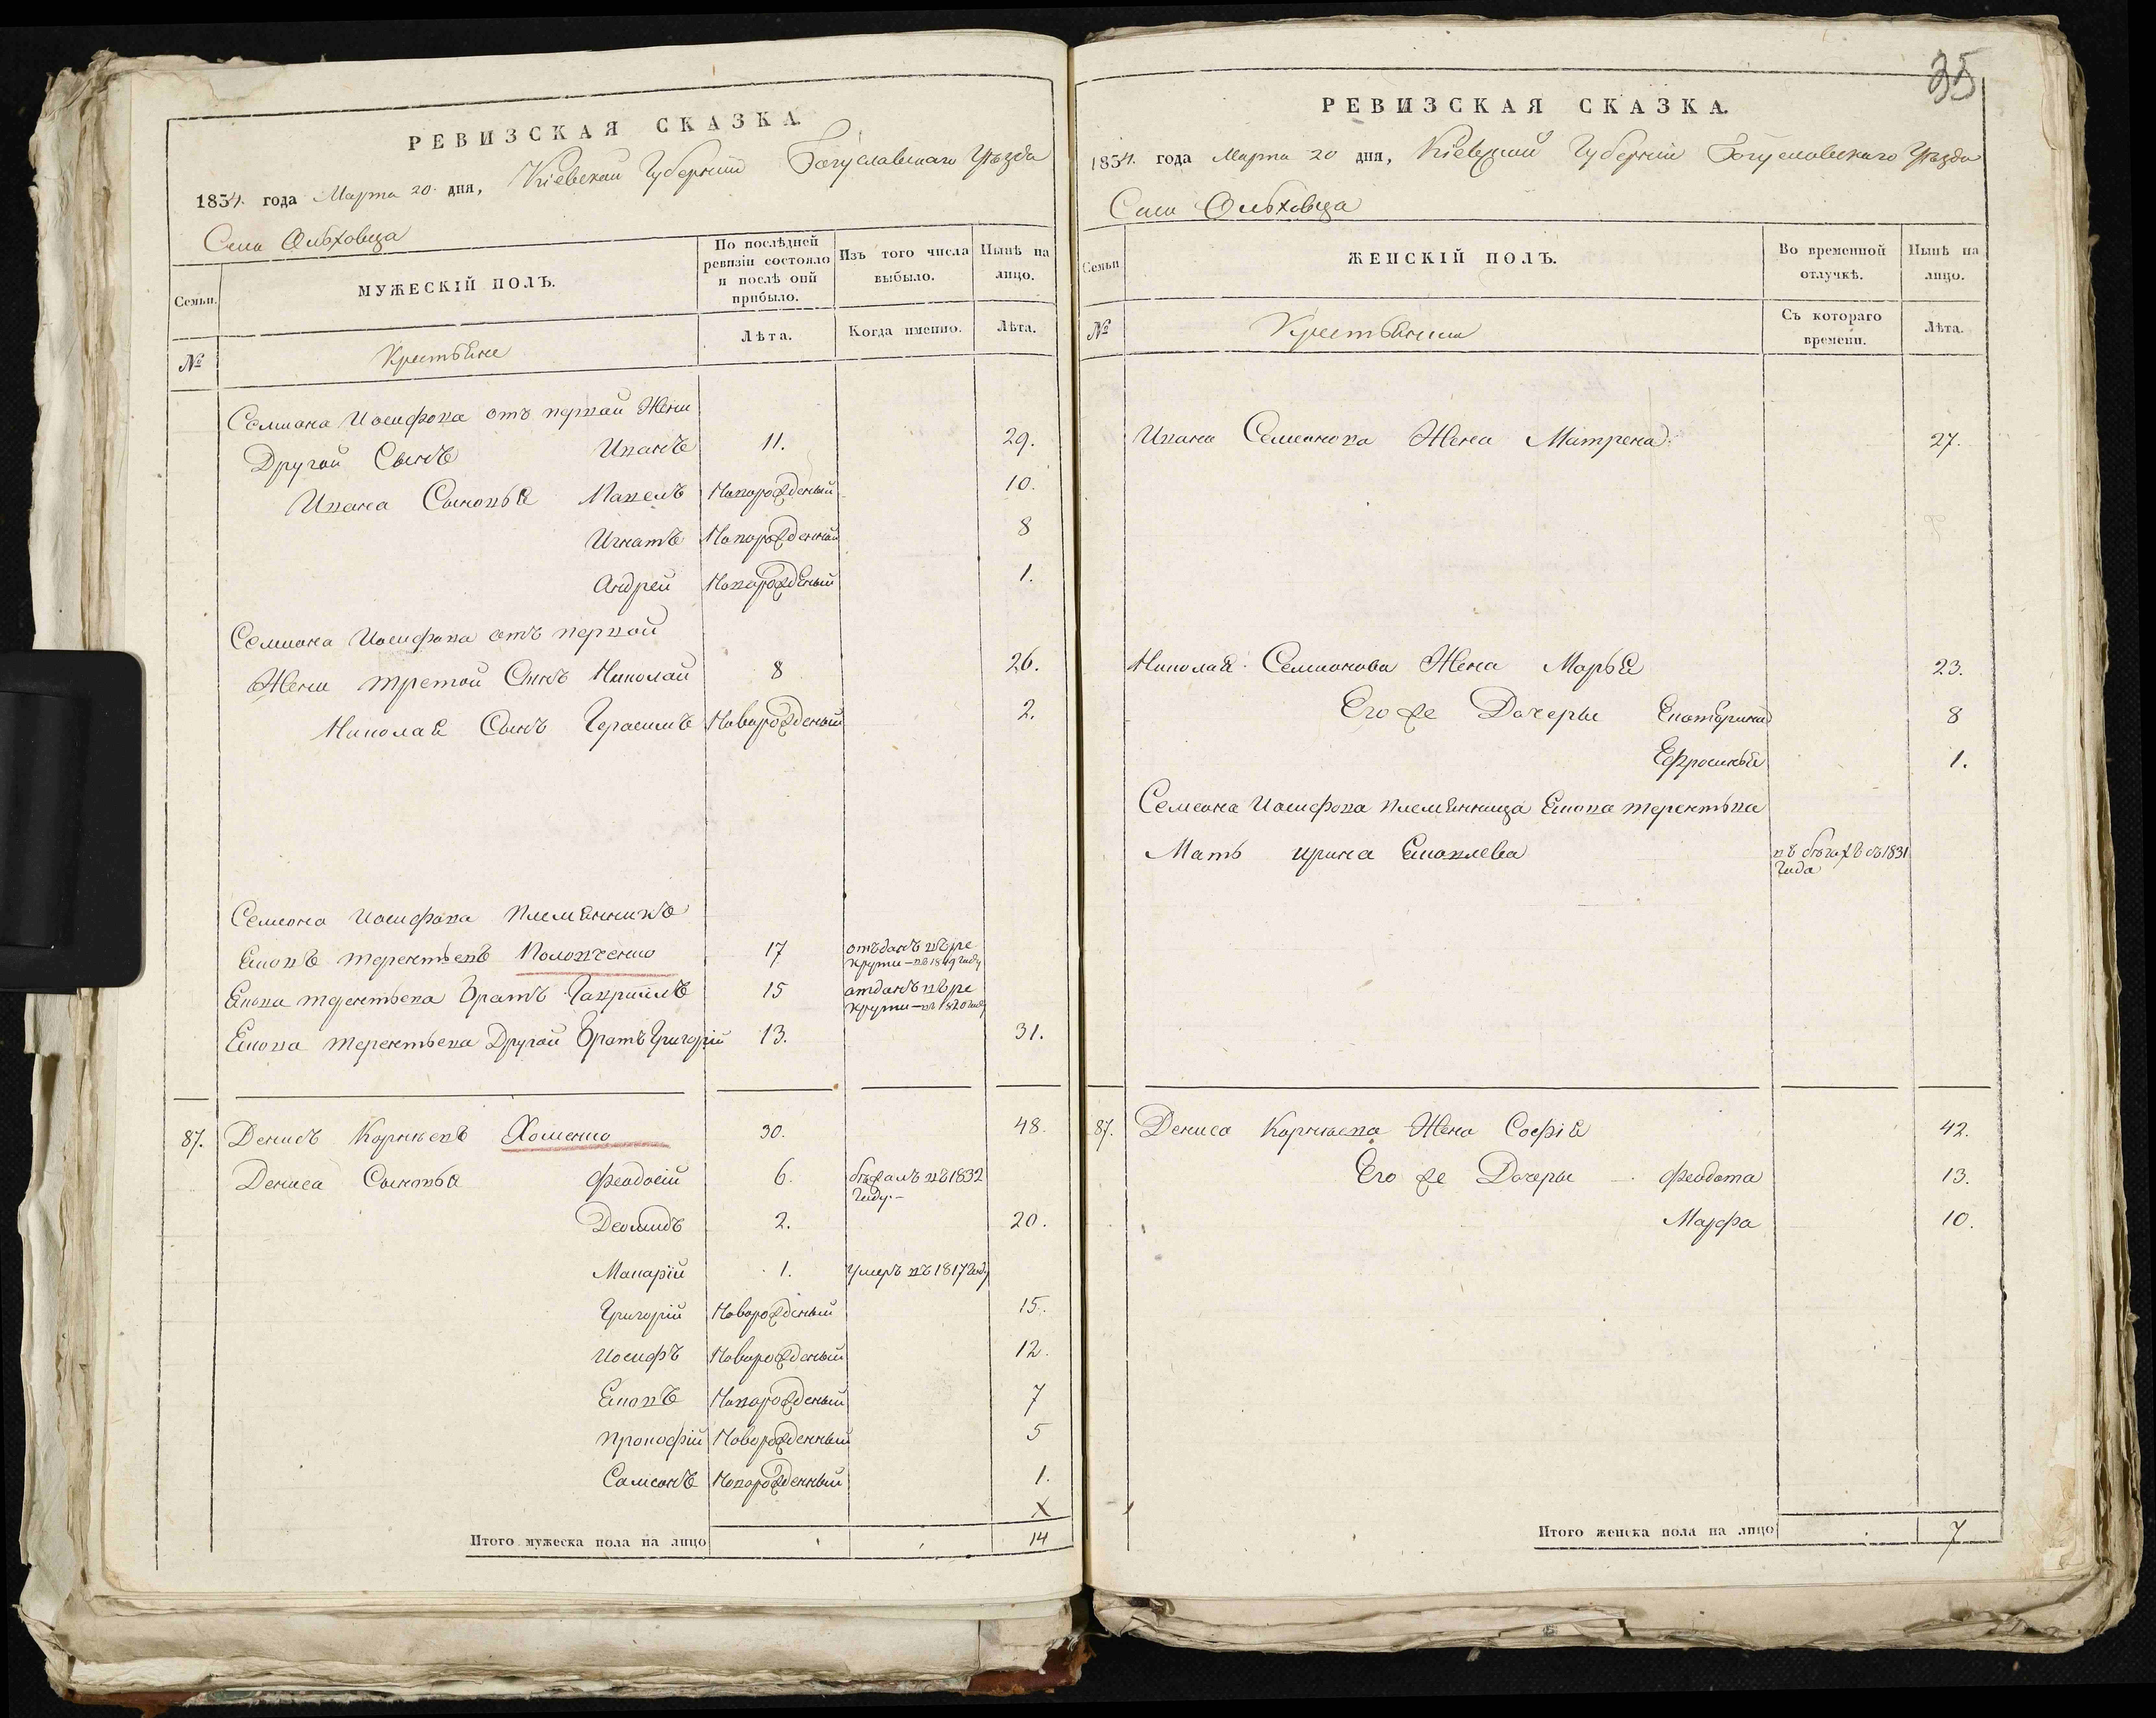 РЕВИЗСКАЯ СКАЗКА.
1834. года Марта 20 дня, Кіевской Губерніи Богуславскаго Уѣзда
Села Ольховца
Семьи.
МУЖЕСКІЙ ПОЛЪ.
По послѣдней ревизіи состояло и послѣ оній прибыло.
Изъ того числа выбыло.
Нынѣ на лицо.
№
Крестьяне
Лѣта.
Когда именно.
Лѣта.
Семиона Иосифова отъ первой Жени
Другой Сынъ Иванъ 11. 29.
Ивана Сыновья Павелъ Новорожденый 10.
Игнатъ Новорожденный 8
Андрей Новорожденый 1.
Семиона Иосифова отъ первой
Жени третой Сынъ Николай 8 26.
Николая Сынъ Герасимъ Новорожденый 2.
Семиона Иосифова племянникъ
Еновъ терентьевъ 17 отъданъ въ ре
круты – въ 1819 году
Енова терентьева братъ Гавриилъ 15 отданъ въ ре
круты – въ 1820 году
Енова терентьева Другой братъ Григорій 13. 31.
87. Денисъ Корниевъ Хоменко 30. 48.
Дениса Сыновья Феодосій 6. бѣжалъ въ 1832
Году. –
Деомидъ 2. 20.
Макарій 1. умеръ въ 1817 году
Григорій Новорожденый 15.
Иосифъ Новорожденый 12.
Еновъ Новорожденый 7
Прокофій Новорожденный 5
Самсонъ Новорожденный 1.
X
Итого мужеска пола на лицо 14
35
РЕВИЗСКАЯ СКАЗКА.
1834. года Марта 20 дня, Кіевской Губерніи Богуславскаго Уѣзда
Села Ольховца
Семьи
ЖЕНСКІЙ ПОЛЪ.
Во временной отлучкѣ.
Нынѣ на лицо.
№
Крестьянки
Съ котораго времени.
Лѣта.
Ивана Семионова Жена Матрена 27.
Николая Семионова Жена Марья 23.
Его же Дочеры Екатерина 8
Ефросинья 1.
Семеона Иосифова племянница Енова терентьва
Мать ирина въ бѣгахъ съ 1831
Года
87. Дениса Корниева Жена Софія 42.
Его же Дочеры Феодота 13.
Марфа 10.
Итого женска пола на лицо 7